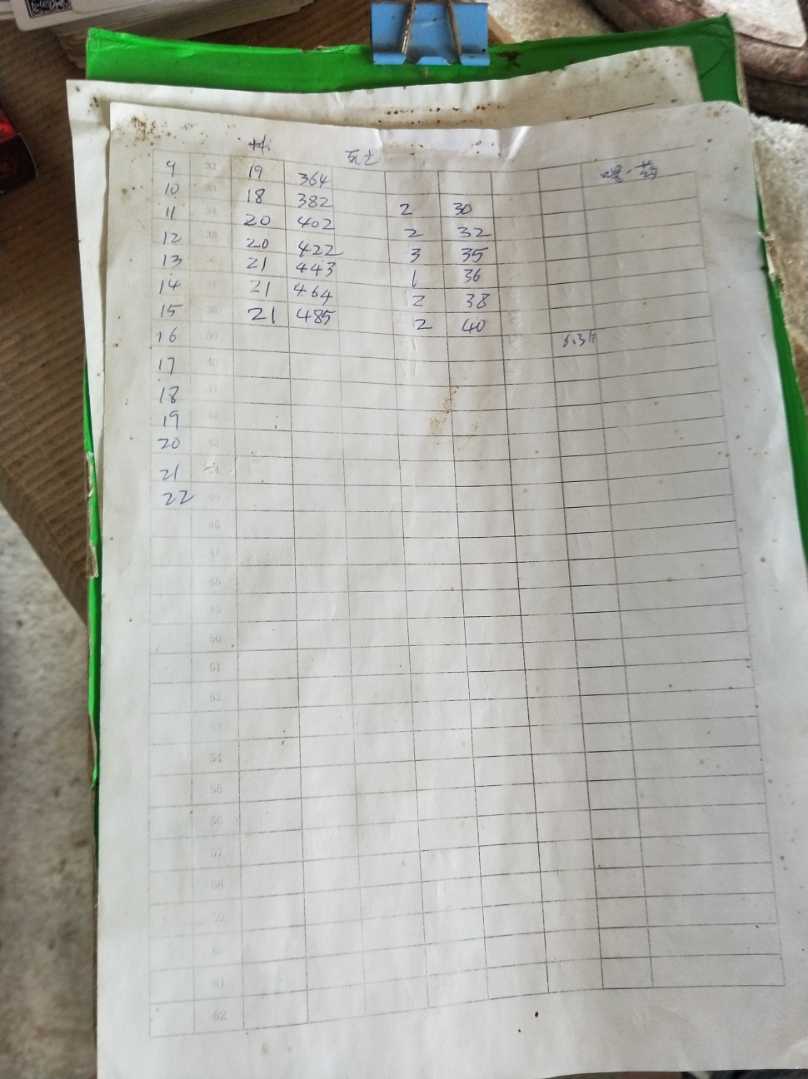 死亡
9 19 364
10 18 382 2 30
11 20 402 2 32
12 20 422 3 35
13 21 443 1 36
14 21 464 2 38
15 21 485 2 40
16
17
18
19
20
21
22
46
47
48
50
51
52
53
54
55
56
57
58
62